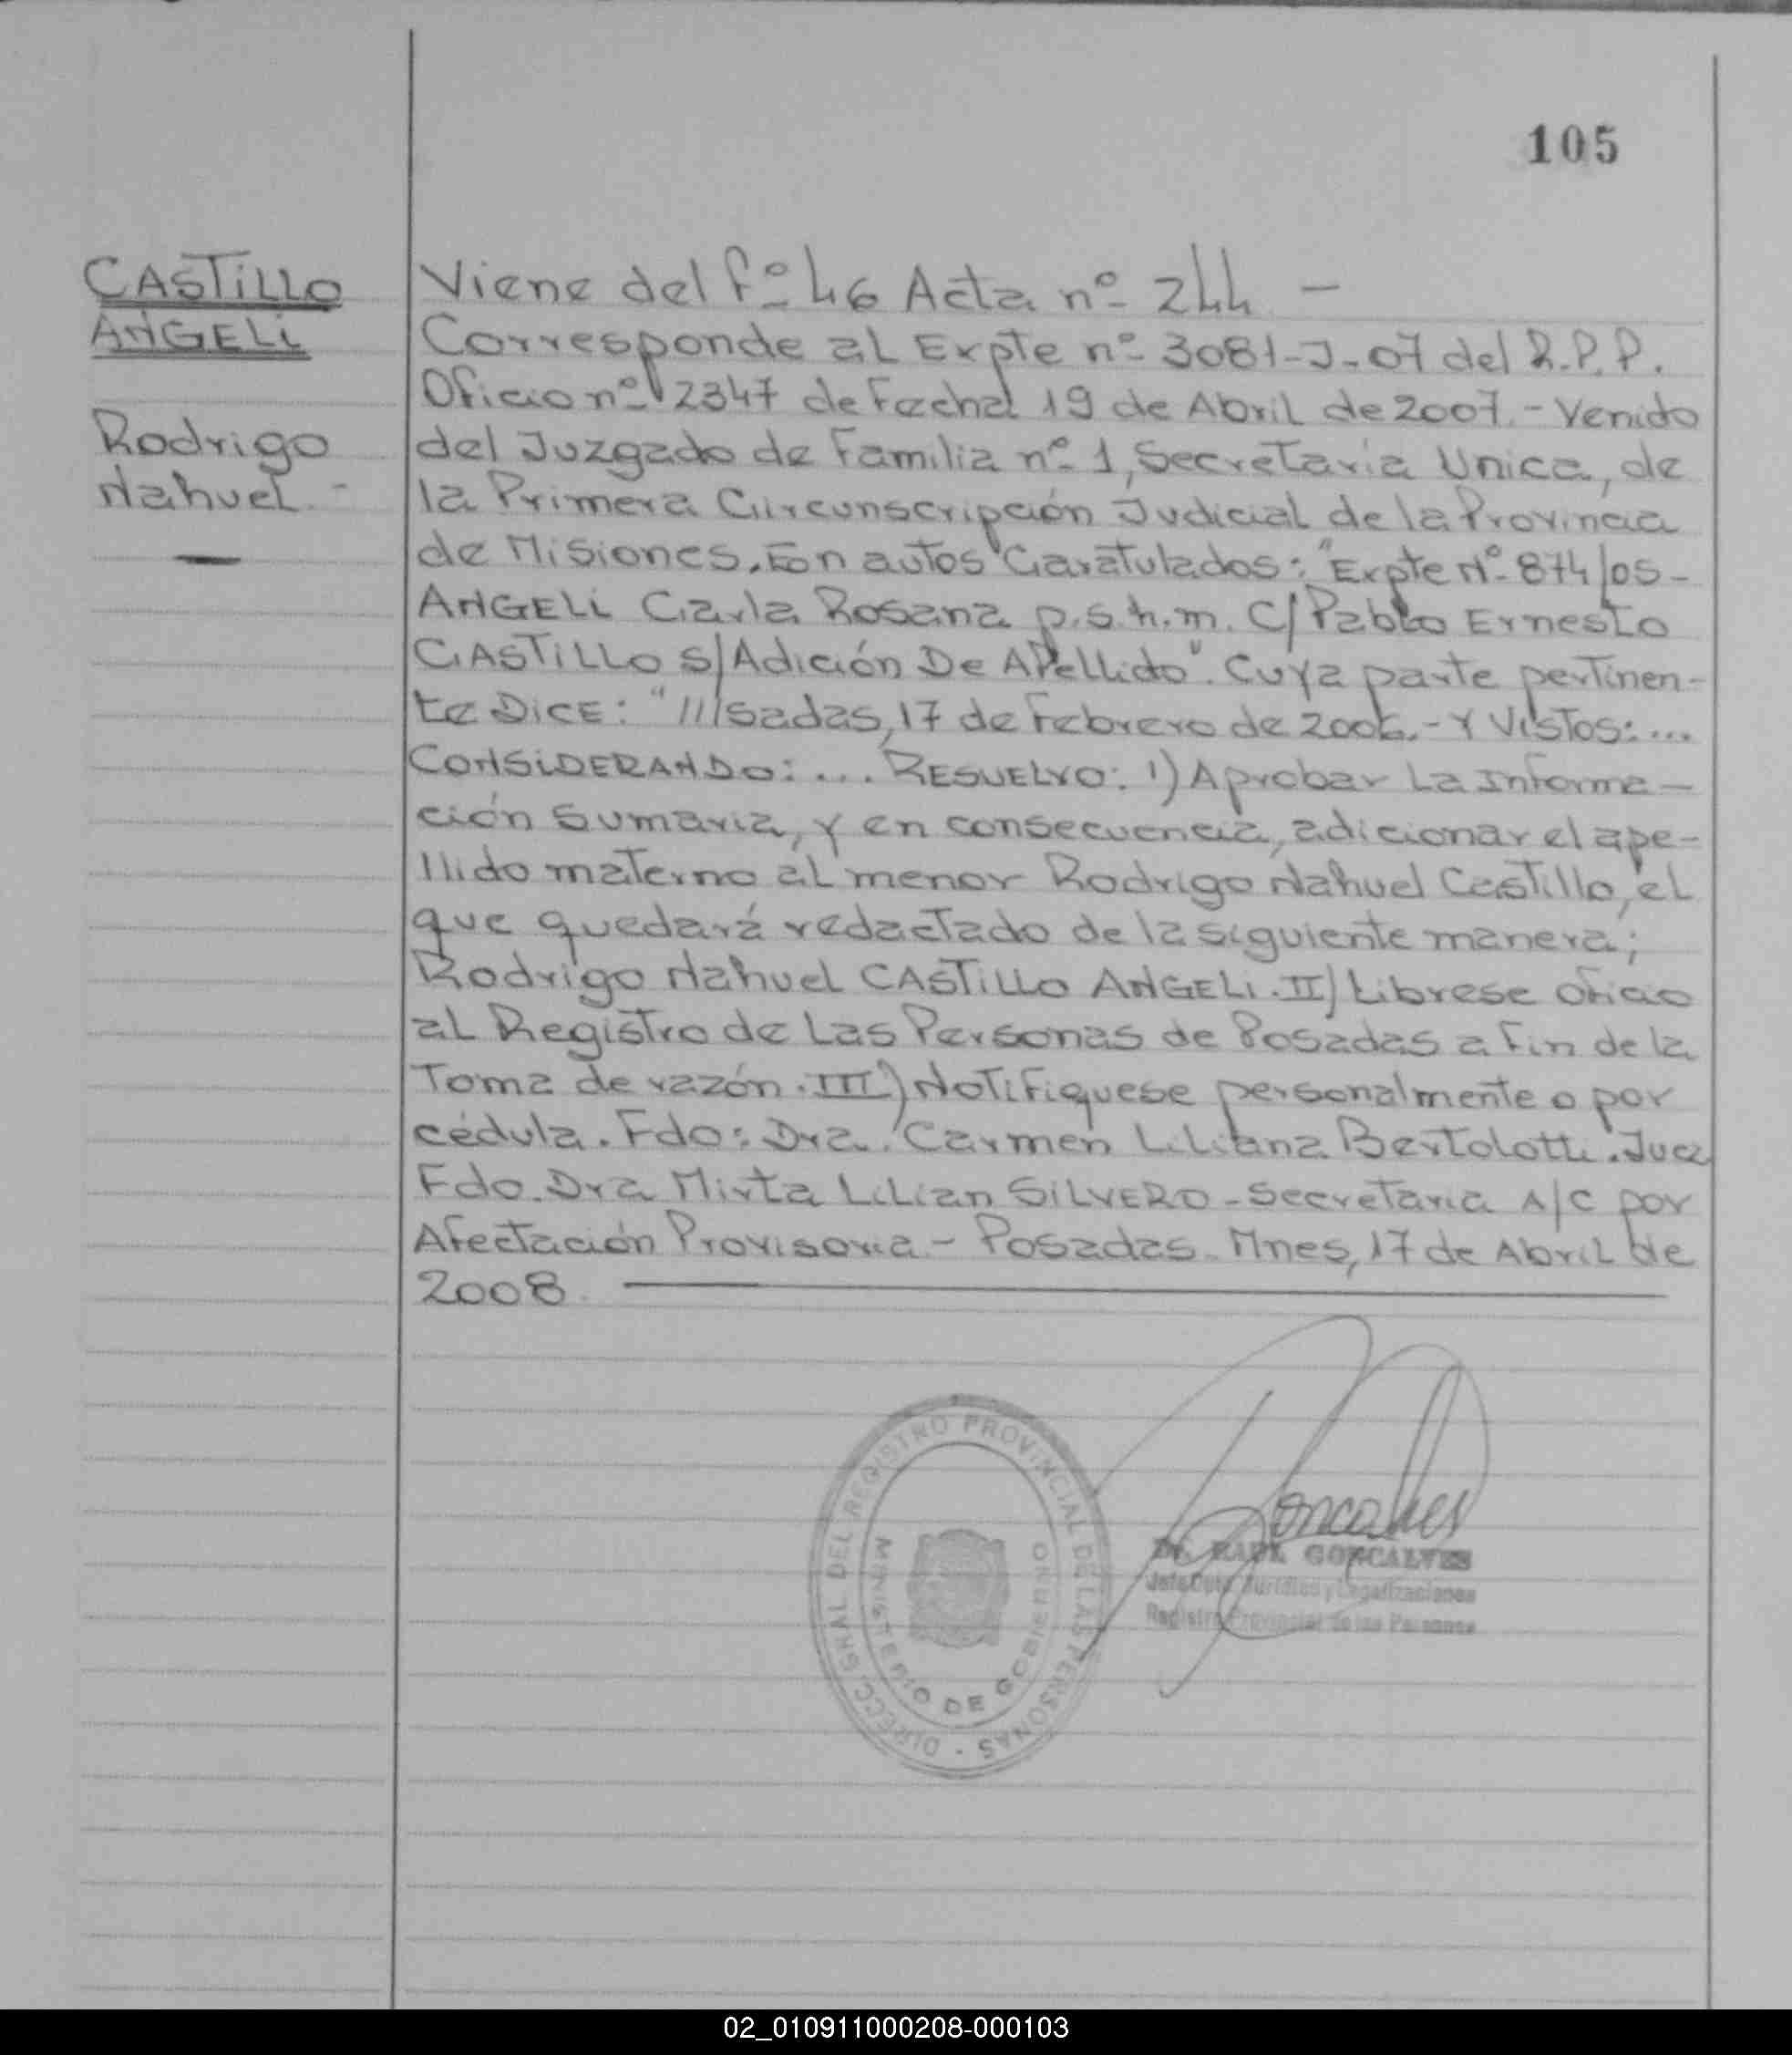 105
CASTILLO
ANGELI
Rodrigo
Nahuel.-
Viene del fº 46 Acta nº 244 -
Corresponde al Expte nº 3081-J-07 del R.P.P.
Oficio nº 2347 de Fecha 19 de Abril de 2007.- Venido
del Juzgado de Familia nº 1, Secretaria Unica, de
la Primera Circunscripción Judicial de la Provincia
de Misiones. En autos Caratulados: "Expte Nº 874/05-
ANGELI Carla Rosana p.s.h.m. C/ Pablo Ernesto
CASTILLO S/ Adición De Apellido". Cuya parte pertinen-
te DICE: "///sadas, 17 de Febrero de 2006.- Y VISTOS:...
CONSIDERANDO:... RESUELVO: 1) Aprobar La Informa-
ción Sumaria, y en consecuencia, adicionar el ape-
llido materno al menor Rodrigo Nahuel Castillo, el
que quedará redactado de la siguiente manera;
Rodrigo Nahuel CASTILLO ANGELI. II) Librese oficio
al Registro de Las Personas de Posadas a fin de la
Toma de razón. III) Notifiquese personalmente o por
cédula. Fdo: Dra. Carmen Liliana Bertolotti. Juez
Fdo. Dra Mirta Lilian SILVERO - Secretaria A/C por
Afectación Provisoria - Posadas Mnes, 17 de Abril de
2008.
DIRECC. GRAL DEL REGISTRO PROVINCIAL DE LAS PERSONAS -
MINISTERIO DE GOBIERNO
Goncalves
Dr. RAUL GONCALVES
Jefe Dpto. Jurídico y Legalizaciones
Registro Provincial de las Personas
02_010911000208-000103